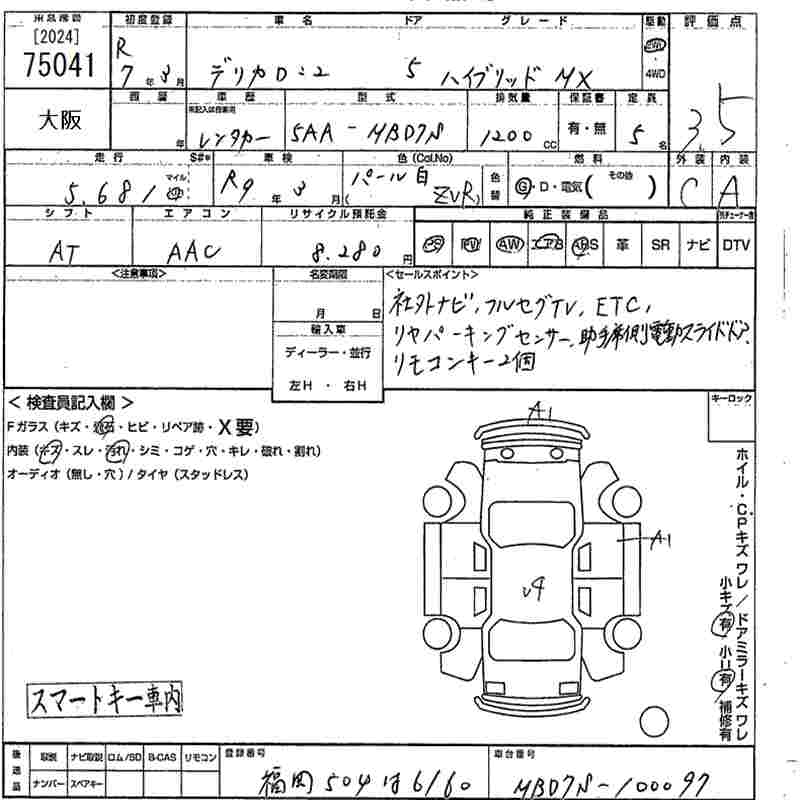 [2024]
75041
大阪
初度登録
R
7年3月
車名 ドア グレード
デリカD:2 5 ハイブリッド MX
駆動
4WD
評価点
3.5
年
車歴
レンタカー
型式
5AA-MBD7N
排気量
1200 CC
保証書
有・無
定員
5名
走行
5,681
マイル
S#*
車検
R9年3月
色(Col.No)
パール白
(ZVR)
色替
燃料
G・D・電気( その他 )
外装 内装
C A
シフト
AT
エアコン
AAC
リサイクル預託金
8,280円
純正装備品
PS PW AW エアB ABS 革 SR ナビ DTV
<注意事項>
名変期限
月 日
輸入車
ディーラー・並行
左H・右H
<セールスポイント>
社外ナビ,フルセグTV,ETC,
リヤパーキングセンサー,助手席側電動スライドドア,
リモコンキー2個
<検査員記入欄>
Fガラス(キズ・飛石・ヒビ・リペア跡・X要)
内装(キズ・スレ・汚れ・シミ・コゲ・穴・キレ・破れ・割れ)
オーディオ(無し・穴)/タイヤ(スタッドレス)
キーロック
A1
A1
ホイル・CPキズワレ/ドアミラーキズワレ
小キズ有 小凹有 補修有
スマートキー車内
後送品
取説 ナビ取説 ロム/SD B-CAS リモコン
ナンバー スペアキー
登録番号
福岡504は6160
車台番号
MBD7N-100097